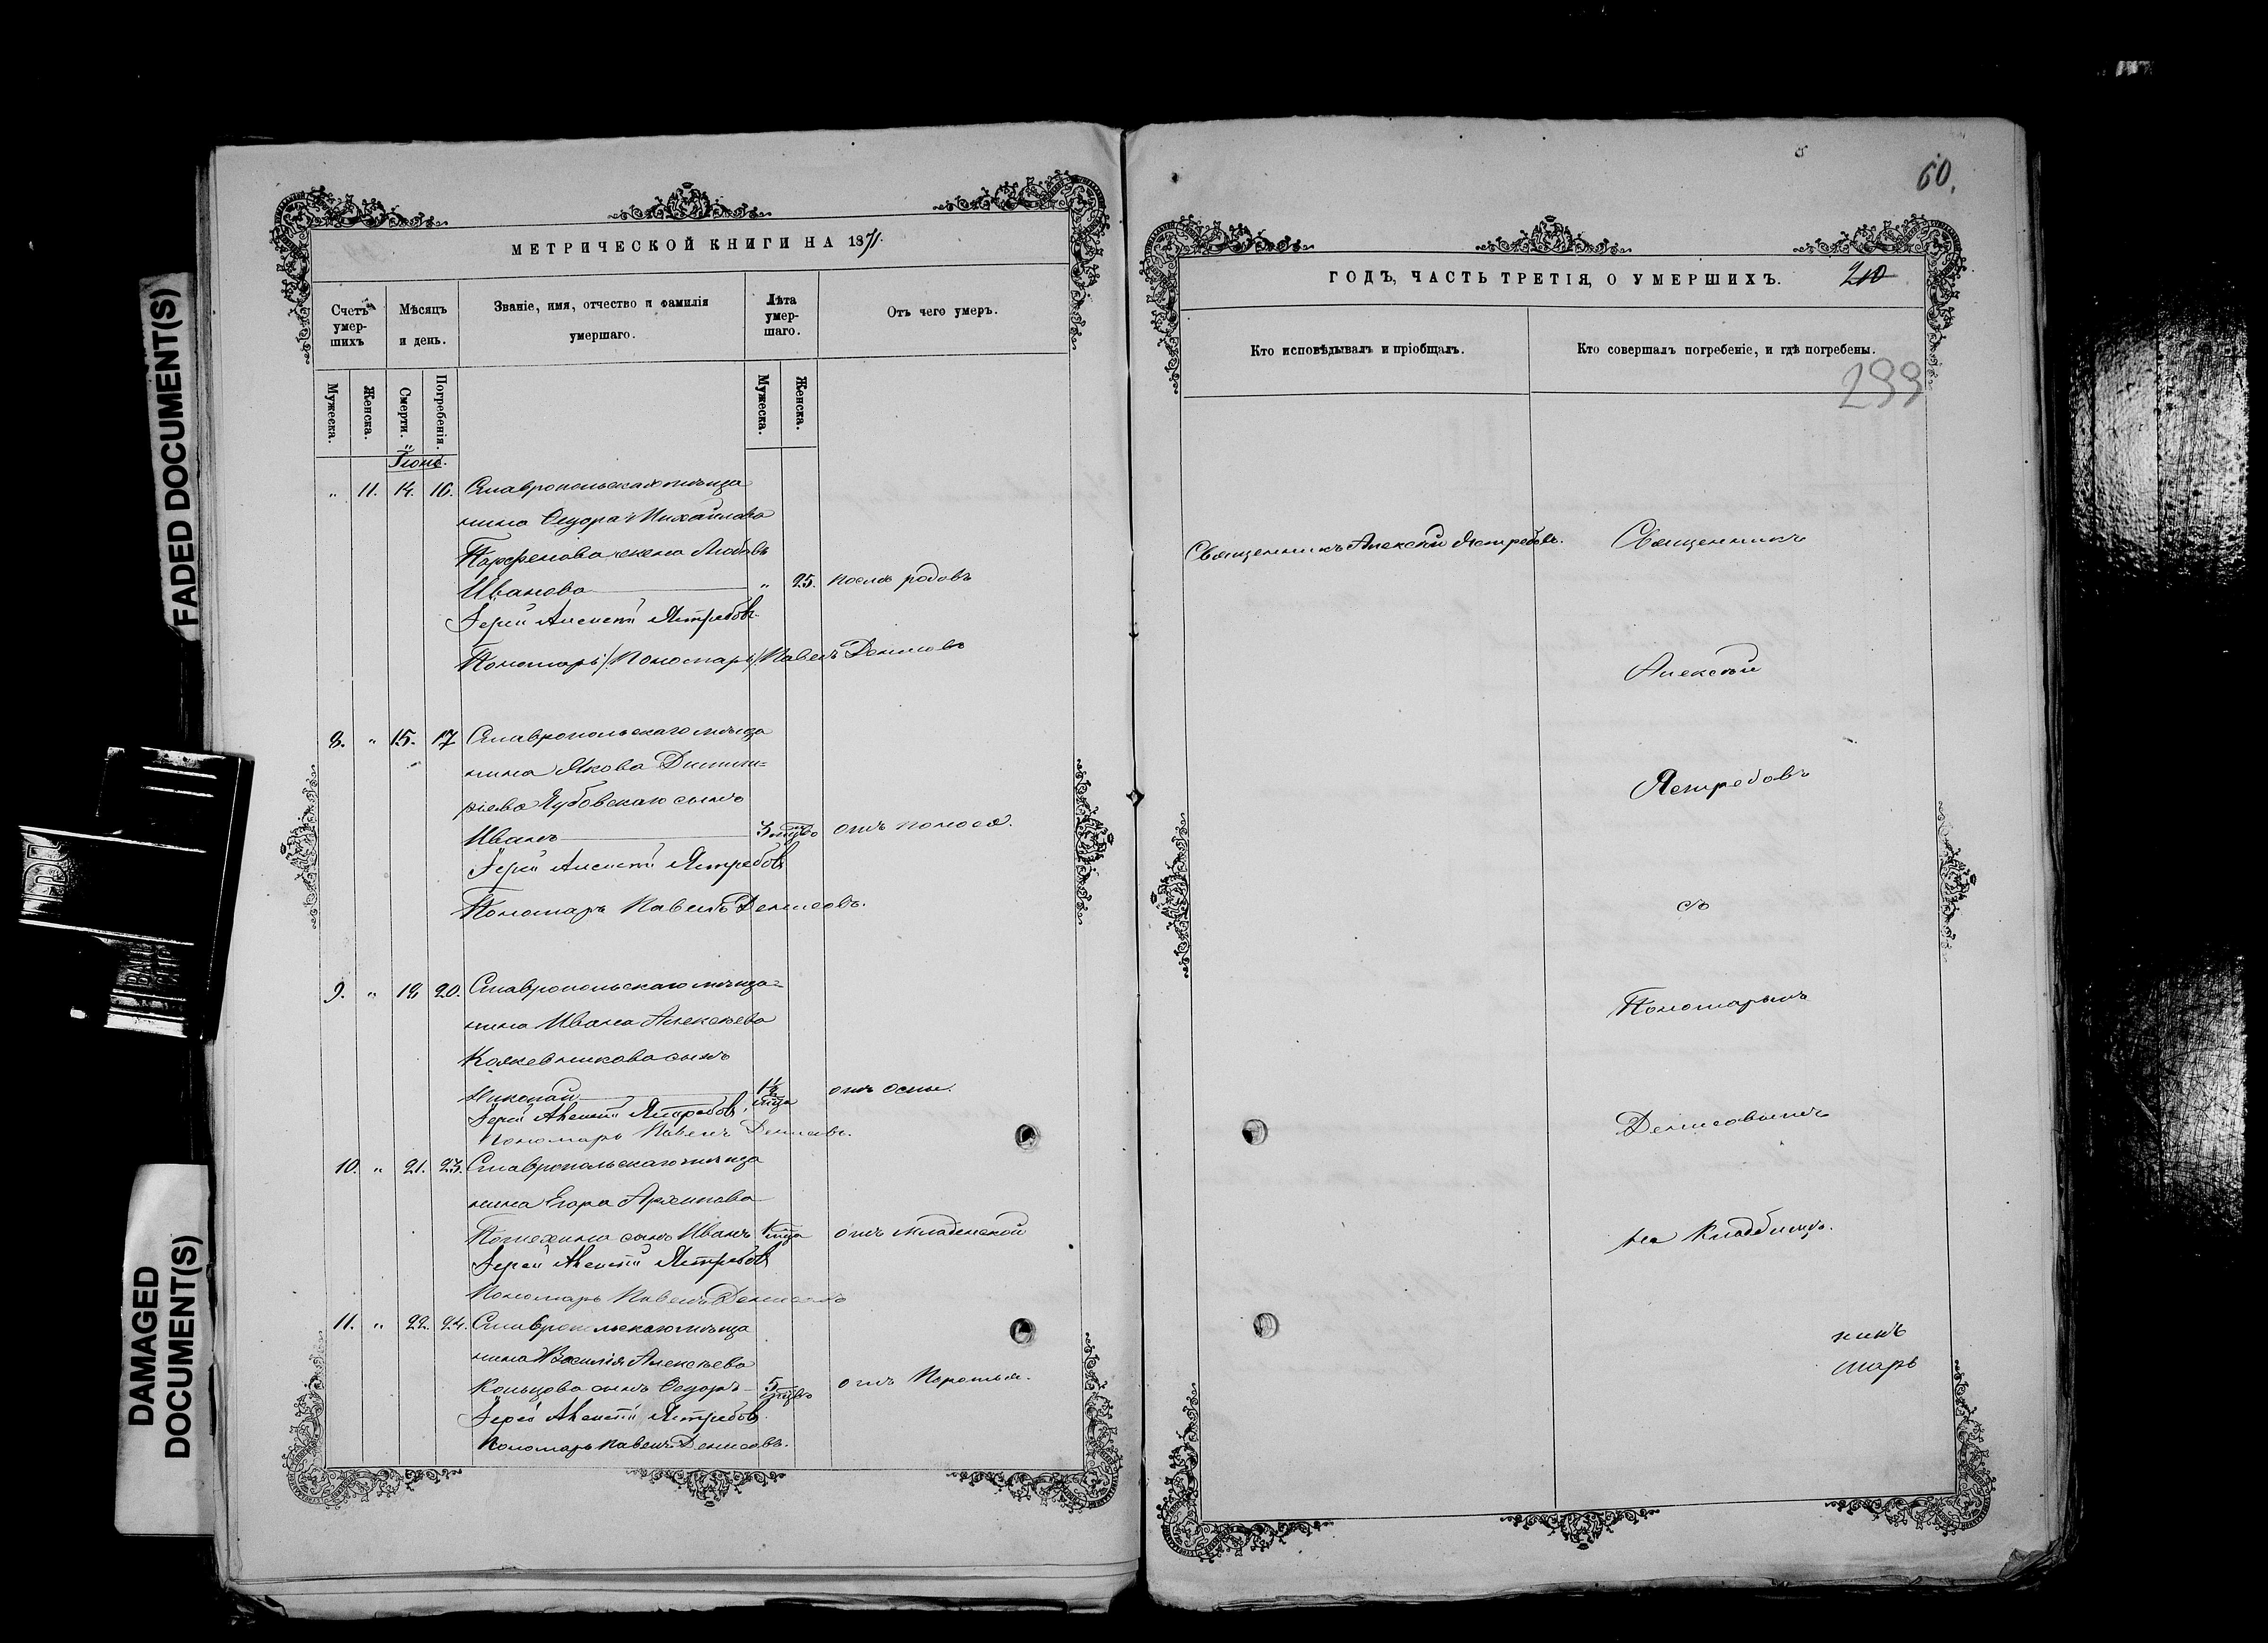 FADED DOCUMENT(S)
DAMAGED
DOCUMENT(S)
МЕТРИЧЕСКОЙ КНИГИ НА 1871.
Счетъ умер-шихъ
Мѣсяцъ и день.
Званіе, имя, отчество и фамилія
умершаго.
Лѣта умер-шаго.
Отъ чего умеръ.
Мужеска.
Женска.
Смерти.
Погребенія.
Мужеска.
Женска.
Іюнь.
„ 11. 14. 16. Ставропольскаго мѣща
нина Ѳедора Михайлова
Парфенова жена Любовь
Иванова „ 25. послѣ родовъ
Іерей Алексѣй Ястребовъ.
Пономарь /: Пономарь :/ Павелъ Денисовъ
8. „ 15. 17 Ставропольскаго мѣща
нина Якова Димит=
ріева Зубовскаго сынъ
Иванъ 3 мцѣв отъ поноса.
Іерей Алексѣй Ястребовъ
Пономарь Павелъ Денисовъ.
9. „ 18 20. Ставропольскаго мѣща=
нина Ивана Алексѣева
Кожевникова сынъ
Николай 1½ отъ оспы.
Іерей Алексѣй Ястребовъ,
Пономарь Павелъ Денисовъ.
10. „ 21. 23. Ставропольскаго мѣща
нина Егора Архипова
сынъ Иванъ отъ младенской
Іерей Алексѣй Ястребовъ
Пономарь Павелъ Денисовъ
11. „ 22. 24. Ставропольскаго мѣща
нина Василія Алексѣева
Кольцова сынъ Ѳедоръ 5 отъ
Іерей Алексѣй Ястребовъ.
Пономарь Павелъ Денисовъ.
60.
ГОДЪ, ЧАСТЬ ТРЕТІЯ, О УМЕРШИХЪ. 210
Кто исповѣдывалъ и пріобщалъ.
Кто совершалъ погребеніе, и гдѣ погребены.
299
Священникъ Алексѣй Ястребовъ.
Священникъ
Алексѣй
Ястребовъ
съ
Пономаремъ
Денисовымъ
на Кладбищѣ.
никъ
марь